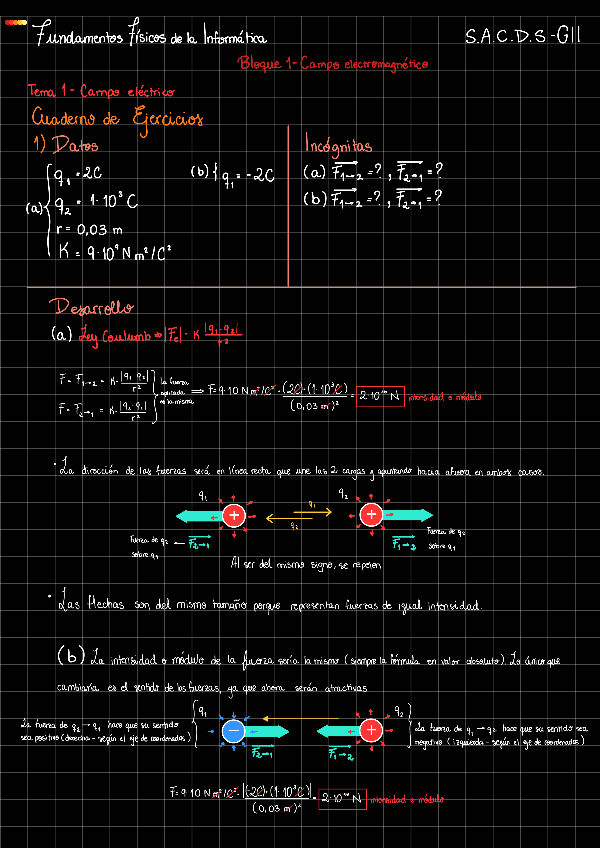 Fundamentos Físicos de la Informática
S.A.C.D.S-GII
Bloque 1- Campo electromagnético
Tema 1 - Campo eléctrico
Cuaderno de Ejercicios
1) Datos
Incógnitas
(a) q₁ = 2C
q₂ = 1·10³ C
r = 0,03 m
K = 9·10⁹ N m²/C²
(b) { q₁ = -2C
(a) F₁→₂ = ? , F₂→₁ = ?
(b) F₁→₂ = ? , F₂→₁ = ?
Desarrollo
(a) Ley Coulomb ⇒ |Fe| = K |q₁·q₂| / r²
F = F₁→₂ = K· |q₁·q₂| / r²
F = F₂→₁ = K· |q₂·q₁| / r²
La fuerza
aplicada
es la misma
⇒ F = 9·10 N m²/C² · (2C)·(1·10³C) / (0,03 m)² = 2·10¹⁶ N intensidad o módulo
· La dirección de las fuerzas será en línea recta que une las 2 cargas y apuntando hacia afuera en ambos casos.
q₁ q₁ q₂
+ q₂ +
Fuerza de q₂ ← F₂→₁
sobre q₁
F₁→₂ Fuerza de q₂
sobre q₁
Al ser del mismo signo, se repelen
· Las flechas son del mismo tamaño porque representan fuerzas de igual intensidad.
(b) La intensidad o módulo de la fuerza sería la misma (siempre la fórmula en valor absoluto). Lo único que
cambiaría es el sentido de las fuerzas, ya que ahora serán atractivas
q₁ q₂
− +
La fuerza de q₂ → q₁ hace que su sentido
sea positivo (derecha - según el eje de coordenadas)
F₂→₁ F₁→₂
La fuerza de q₁ → q₂ hace que su sentido sea
negativo (izquierda - según el eje de coordenadas)
F = 9·10 N m²/C² · |(-2C)·(1·10³C)| / (0,03 m)² = 2·10¹⁶ N intensidad o módulo